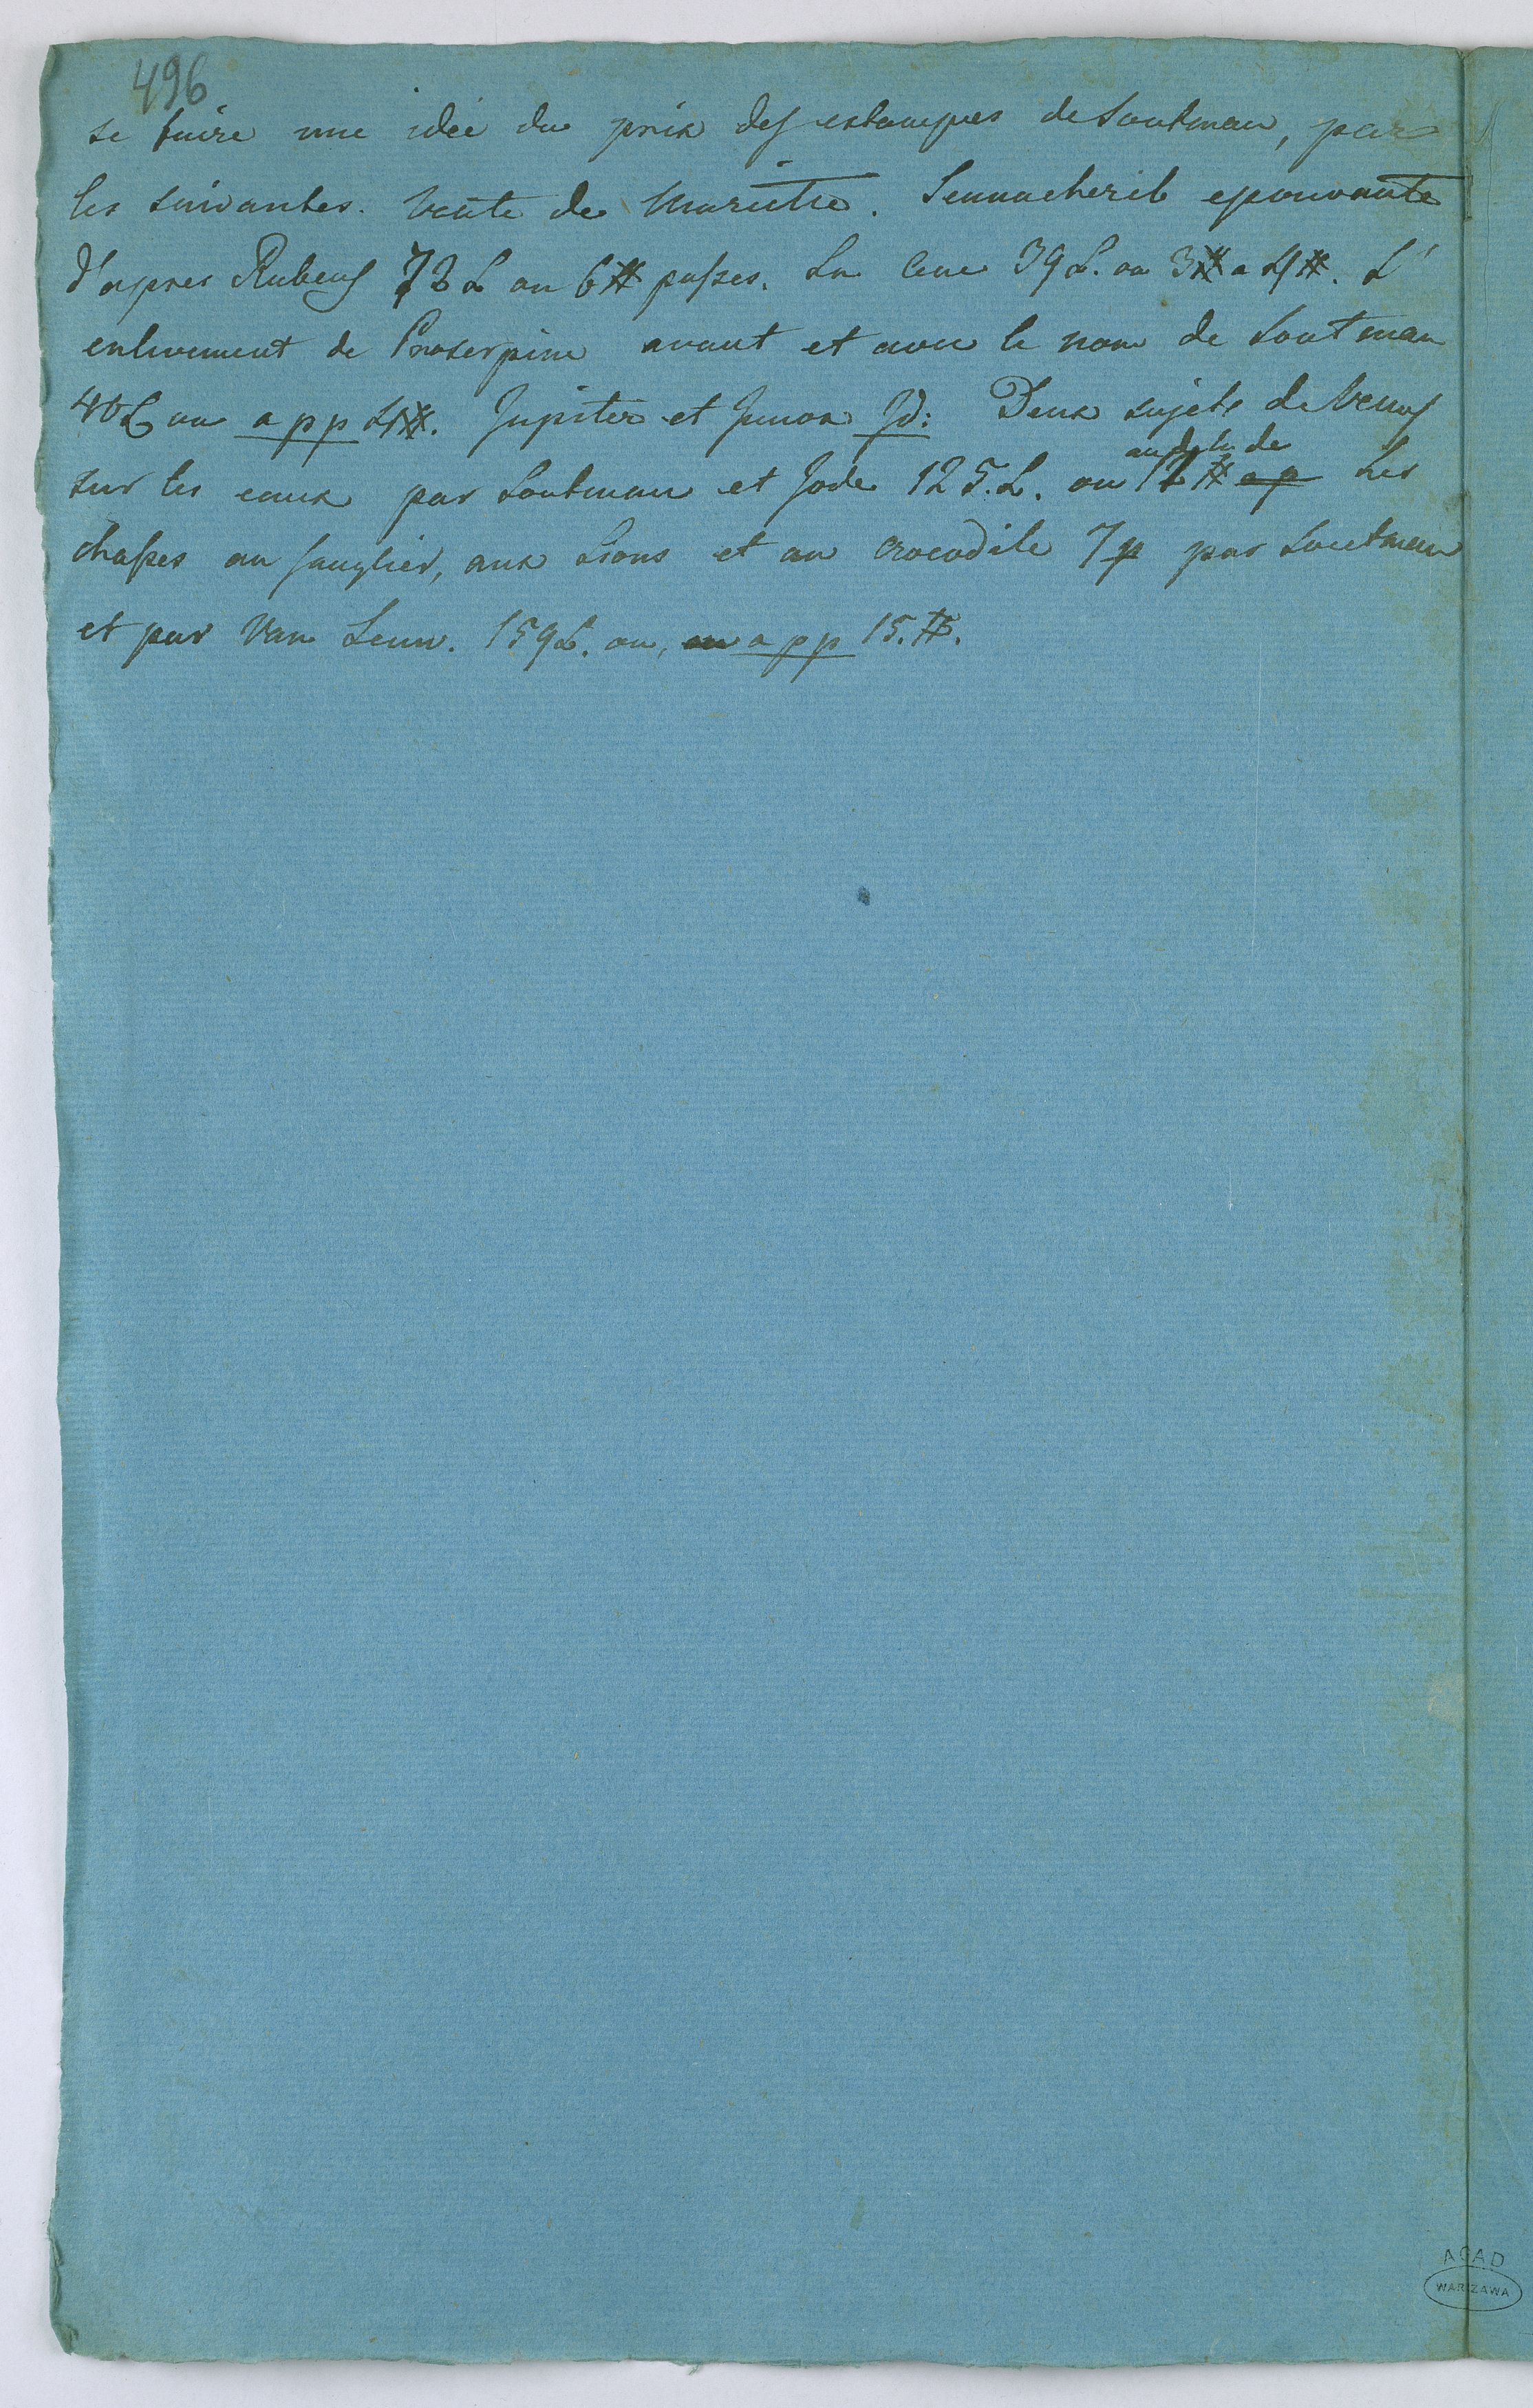 496
se faire une idée du prix des estampes de Soutman, par
les suivantes. Vente de Mariette. Sennacherib epouvanté
d'apres Rubens 72 L ou 6 # passés. La Cene 39 L. ou 3 # a 4 #. L'
enlevement de Proserpine avant et avec le nom de Soutman
40 L ou a p p 4 #. Jupiter et Junon Id: Deux sujets de Venus
au dela de
sur les eaux par Soutman et Jode 125. L. ou 12 # a p Les
chasses au sanglier, aux Lions et au crocodile 7 p par Soutman
et par Van Leuw. 159 L. ou, ou a p p 15. #.
AGAD
WARSZAWA